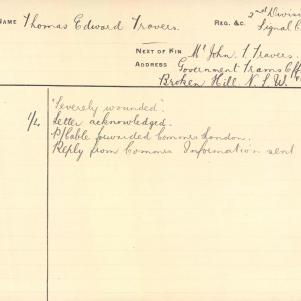 NAME Thomas Edward Travers. REG. &C. 2nd Divisi
Signal C
NEXT OF KIN Mr John T Travers.
ADDRESS Government Trams Off
Broken Hill N.S.W.
"Severely wounded".
1/2 Letter acknowledged.
P/Cable forwarded Commr London.
Reply from Commr Information sent